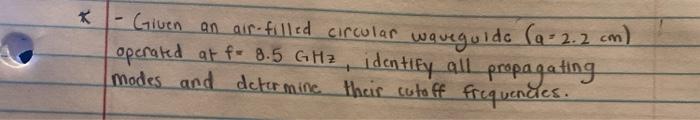 * - Given an air-filled circular waveguide (a = 2.2 cm)
operated at f = 8.5 GHz, identify all propagating
modes and determine their cutoff frequencies.